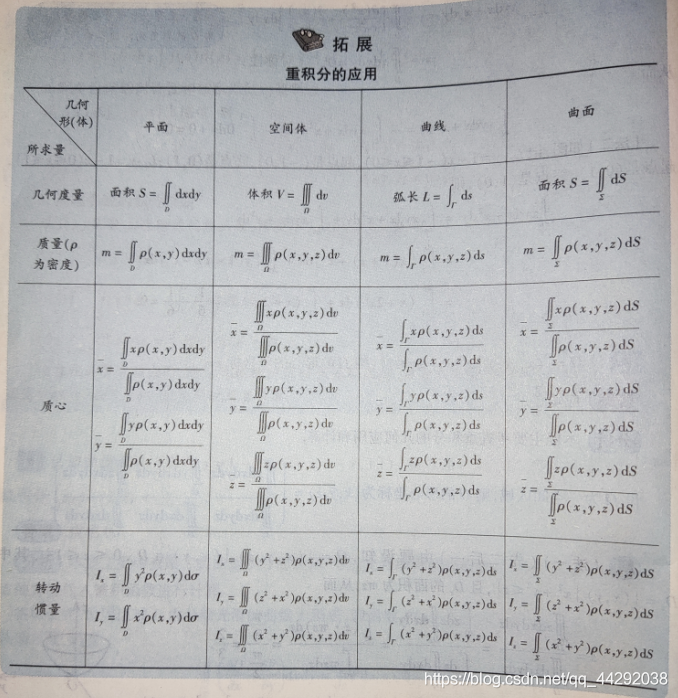 拓展
重积分的应用
几何形(体) 所求量 平面 空间体 曲线 曲面
几何度量 面积 S = ∬_D dxdy 体积 V = ∭_Ω dv 弧长 L = ∫_Γ ds 面积 S = ∬_Σ dS
质量(ρ为密度) m = ∬_D ρ(x,y)dxdy m = ∭_Ω ρ(x,y,z)dv m = ∫_Γ ρ(x,y,z)ds m = ∬_Σ ρ(x,y,z)dS
质心
x̄ = ∬_D xρ(x,y)dxdy / ∬_D ρ(x,y)dxdy
ȳ = ∬_D yρ(x,y)dxdy / ∬_D ρ(x,y)dxdy
x̄ = ∭_Ω xρ(x,y,z)dv / ∭_Ω ρ(x,y,z)dv
ȳ = ∭_Ω yρ(x,y,z)dv / ∭_Ω ρ(x,y,z)dv
z̄ = ∭_Ω zρ(x,y,z)dv / ∭_Ω ρ(x,y,z)dv
x̄ = ∫_Γ xρ(x,y,z)ds / ∫_Γ ρ(x,y,z)ds
ȳ = ∫_Γ yρ(x,y,z)ds / ∫_Γ ρ(x,y,z)ds
z̄ = ∫_Γ zρ(x,y,z)ds / ∫_Γ ρ(x,y,z)ds
x̄ = ∬_Σ xρ(x,y,z)dS / ∬_Σ ρ(x,y,z)dS
ȳ = ∬_Σ yρ(x,y,z)dS / ∬_Σ ρ(x,y,z)dS
z̄ = ∬_Σ zρ(x,y,z)dS / ∬_Σ ρ(x,y,z)dS
转动惯量
I_x = ∬_D y²ρ(x,y)dσ
I_y = ∬_D x²ρ(x,y)dσ
I_x = ∭_Ω (y²+z²)ρ(x,y,z)dv
I_y = ∭_Ω (z²+x²)ρ(x,y,z)dv
I_z = ∭_Ω (x²+y²)ρ(x,y,z)dv
I_x = ∫_Γ (y²+z²)ρ(x,y,z)ds
I_y = ∫_Γ (z²+x²)ρ(x,y,z)ds
I_z = ∫_Γ (x²+y²)ρ(x,y,z)ds
I_x = ∬_Σ (y²+z²)ρ(x,y,z)dS
I_y = ∬_Σ (z²+x²)ρ(x,y,z)dS
I_z = ∬_Σ (x²+y²)ρ(x,y,z)dS
https://blog.csdn.net/qq_44292038